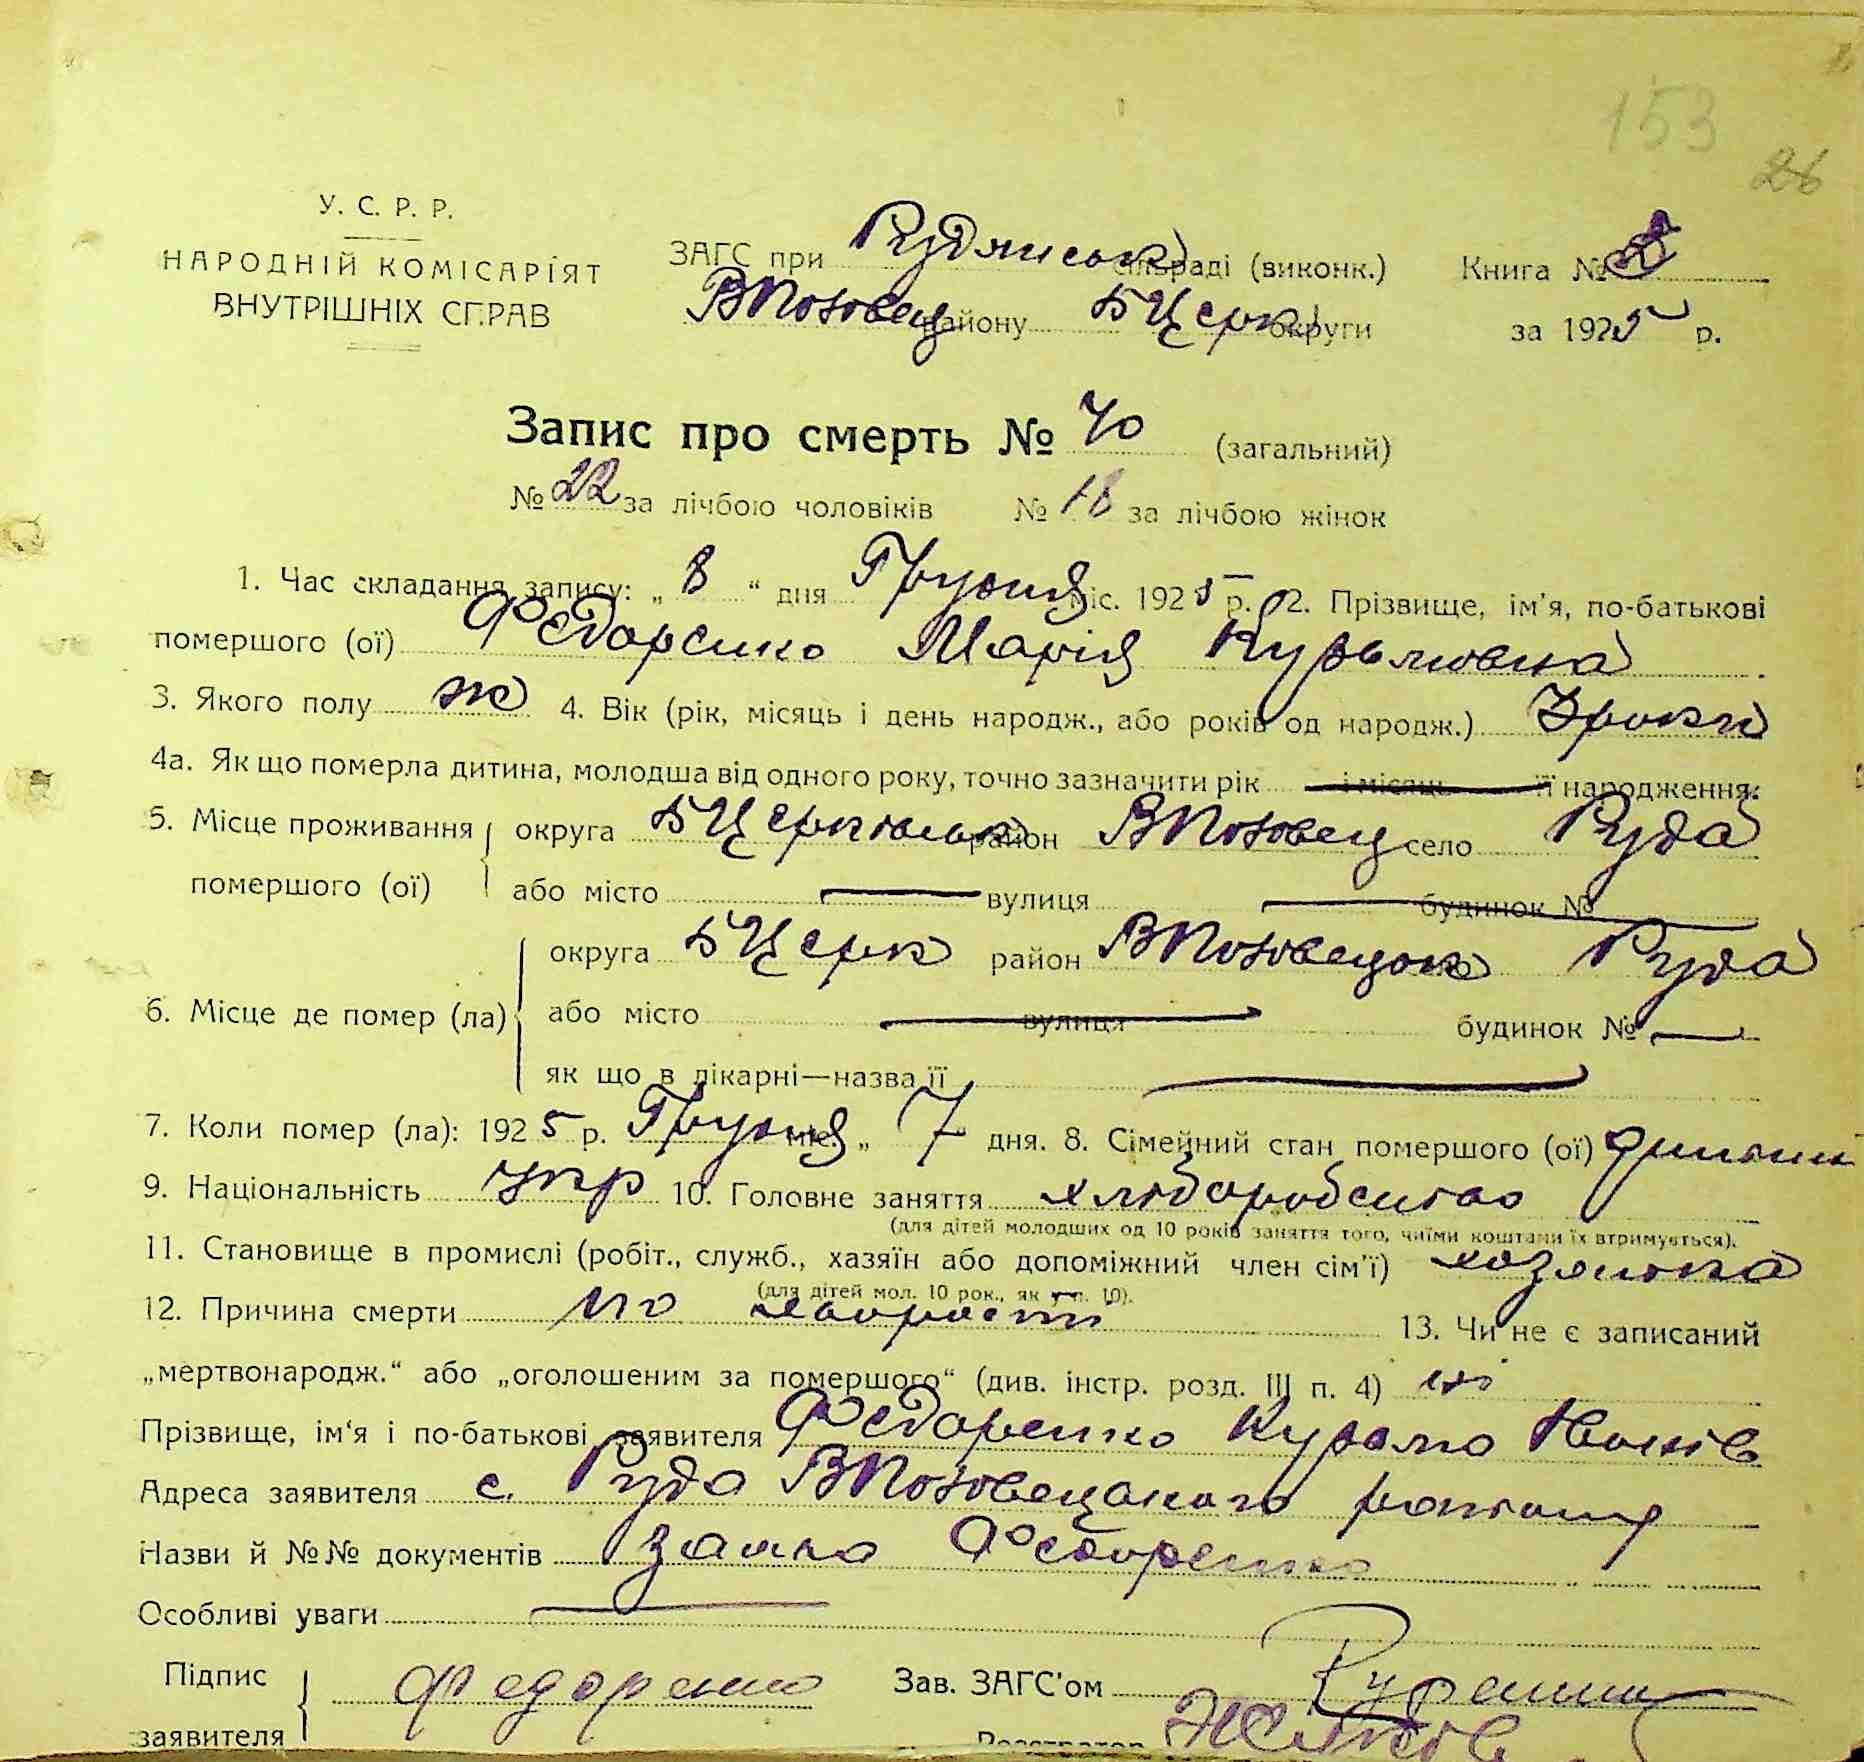 153
26
У. С. Р. Р.
НАРОДНІЙ КОМІСАРІЯТ
ВНУТРІШНІХ СПРАВ
ЗАГС при Рудянськ сільраді (виконк.) Книга №
ВПоловец району БЦерк округи за 1925 р.
Запис про смерть № 40 (загальний)
№ 22 за лічбою чоловіків № 18 за лічбою жінок
1. Час складання запису: „ 8 “ дня Грудня міс. 1925 р. 2. Прізвище, ім'я, по-батькові
помершого (ої) Федоренко Марія Кузьмовна
3. Якого полу ж 4. Вік (рік, місяць і день народж., або років од народж.) 3 роки
4а. Як що померла дитина, молодша від одного року, точно зазначити рік і місяць її народження:
5. Місце проживання округа БЦерківськ район ВПоловец село Руда
помершого (ої) або місто — вулиця — будинок №
6. Місце де помер (ла) округа БЦерк район ВПоловецьк Руда
або місто — вулиця будинок № —
як що в лікарні—назва її —
7. Коли помер (ла): 1925 р. Грудня міс. „ 7 “ дня. 8. Сімейний стан помершого (ої)
9. Національність укр 10. Головне заняття хліборобство
(для дітей молодших од 10 років заняття того, чиїми коштами їх втримується).
11. Становище в промислі (робіт., служб., хазяїн або допоміжний член сім'ї) хозяйка
(для дітей мол. 10 рок., як у п. 10).
12. Причина смерти по 13. Чи не є записаний
„мертвонародж.“ або „оголошеним за помершого“ (див. інстр. розд. III п. 4) ні
Прізвище, ім'я і по-батькові заявителя Федоренко Кузьма
Адреса заявителя с. Руда ВПоловецького району
Назви й №№ документів Заява Федоренко
Особливі уваги —
Підпис заявителя Федоренко Зав. ЗАГС'ом
Реєстратор